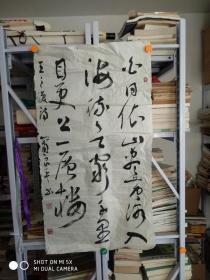 白日依山盡黄河入
海流欲窮千里
目更上一層樓
王之涣詩
SHOT ON MI 5X
MI DUAL CAMERA